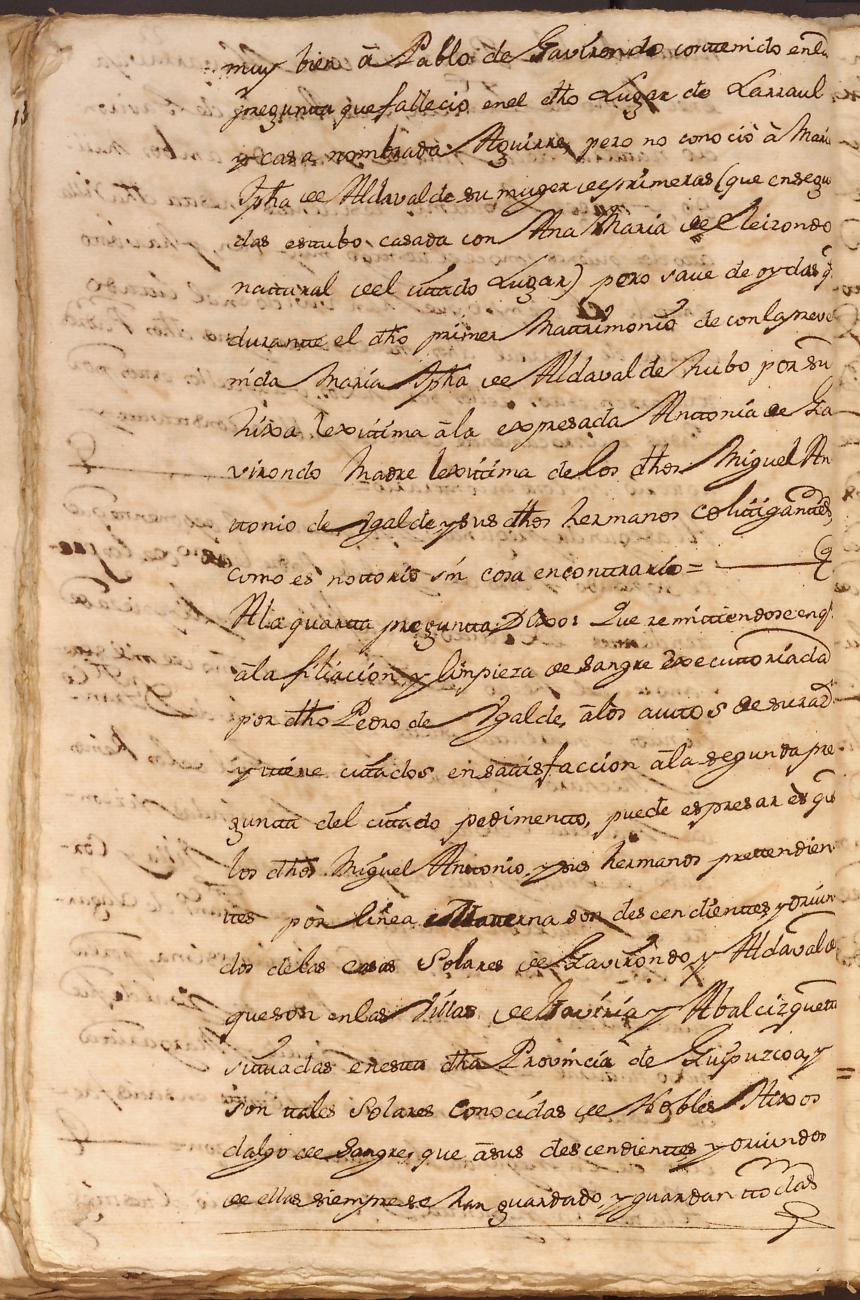 muy bien â Pablo de Gavirondo contenido enla
pregunta que fallecio en el dho Lugar de Larraul
y casa nombrada Aguirre, pero no conociò à Maria
Jpha de Aldavalde su muger de primeras (que en segun
das estubo casada con Ana Maria de Eleizondo
nattural del cittado Lugar) pero save de oydas q
durante el dho primer Mattrimonio de con la refe
rida Maria Jpha de Aldavalde hubo por su
hixa lexitima âla expresada Anttonia de Ga
virondo Madre lexittima de los dhos Miguel An
ttonio de Ygalde y sus dhos hermanos colitigantes
como es nottorio sin cosa en conttrario=
Ala quarta pregunta Dixo: Que remittiendose en q.
âla filiacion y limpieza de sangre Executtoriada
por dho Pedro de Ygalde, âlos auttos de su raz.
y tiene cittados en sattisfaccion âla segunda pre
guntta del cittado pedimentto, puede espresar es que
los dhos Miguel Anttonio, y sus hermanos prettendien
ttes por linea Materna son descendientes y oriun
dos delas casas Solares de Gavirondo y Aldavalde
que son en las Villas de Gaviria y Abalcizquetta
sittuadas en estta dha Provincia de Guipuzcoa, y
son ttales Solares conocidas de Nobles Hixos
dalgo de sangre, que âsus descendienttes y oriundos
de ellas siempre se han guardado, y guardan ttodas